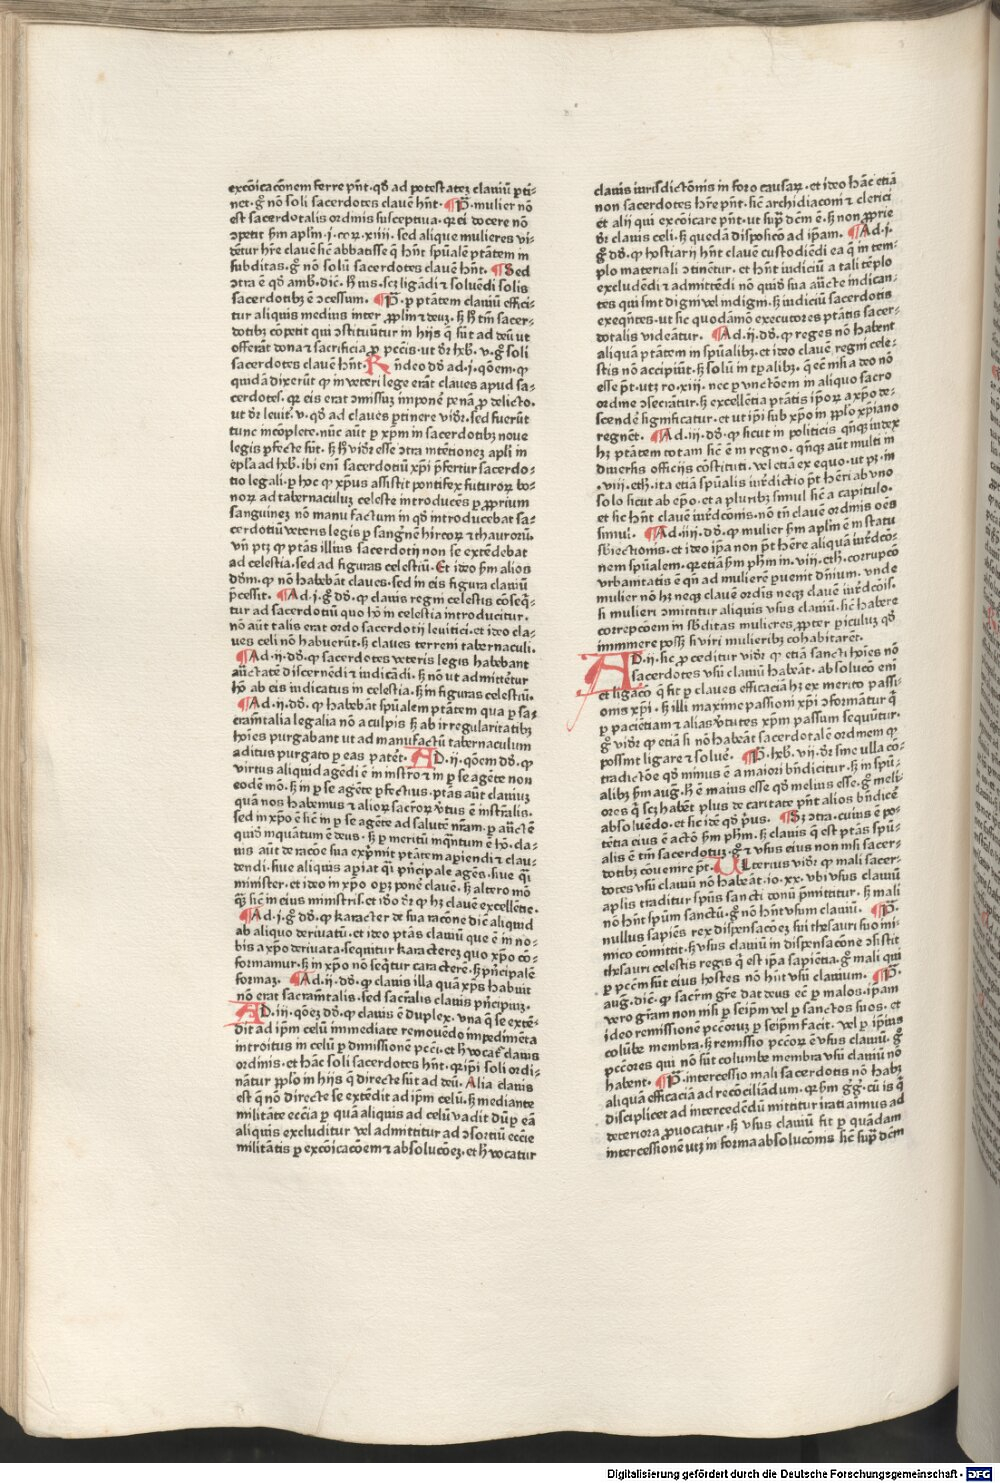 excōicacōnem ferre pn̄t · qd̄ ad potestatez clauiū ꝑti-
net · gͦ nō soli sacerdotes clauē hn̄t · ¶ P̄ · mulier nō
est sacerdotalis ordinis susceptiua · qr ei docere nō
ꝯpetit ẜm aplm̄ · j · cor · xiiii · sed alique mulieres vi-
dētur hr̄e clauē sic̄ abbatisse q̄ hn̄t spūalē ptātem in
subditas · gͦ nō solū sacerdotes clauē hn̄t · ¶ Sed
ꝯtra ē qd̄ amb · dic̄ · h ius · scz ligādi ⁊ soluēdi solis
sacerdotibz ē ꝯcessum · ¶ P̄ · ꝑ ptātem clauiū effici-
tur aliquis medius inter pplm̄ ⁊ deuz · sz h tm̄ sacer-
dotibz cōpetit qui ꝯstituūtur in hijs q̄ sūt ad deū ut
offerāt dona ⁊ sacrificia ꝓ pccīs · ut dr̄ hxb · v · gͦ soli
sacerdotes clauē hn̄t · Rn̄deo dō ad · j · qōem · ꝙ
quidā dixerūt ꝙ in veteri lege erāt claues apud sa-
cerdotes · qr eis erat ꝯmissuz imponē penā ꝓ delicto ·
ut dr̄ leuit · v · qd̄ ad claues ꝑtinere vidr̄ · sed fuerūt
tunc incōplete · nūc aūt ꝑ xp̄m in sacerdotibz noue
legis ꝑfecte sūt · sz h vidr̄ esse ꝯtra intētionez apli in
epl̄a ad hxb · ibi enī sacerdotiū xpī p̄fertur sacerdo-
tio legali · ꝑ hoc ꝙ xp̄us assistit pontifex futuror bo-
nor ad tabernaculuz celeste introducēs ꝑ ꝓprium
sanguinez nō manu factum in qd̄ introducebat sa-
cerdotiū veteris legis ꝑ sangnē hircor ⁊ thauroru ·
vn̄ ptz ꝙ ptās illius sacerdotij non se extēdebat
ad celestia · sed ad figuras celestiū · Et ideo ẜm alios
dd̄m · ꝙ nō habebāt claues · sed in eis figura clauiū
p̄cessit · ¶ Ad · j · gͦ dd̄ · ꝙ clauis regni celestis cōseq̄-
tur ad sacerdotiū quo hō in celestia introducitur ·
nō aūt talis erat ordo sacerdotij leuitici · et ideo cla-
ues celi nō habuerūt · sz claues terreni tabernaculi ·
¶ Ad · ii · dd̄ · ꝙ sacerdotes veteris legis habebant
auctatē discernēdi ⁊ iudicādi · sz nō ut admittētur
hō ab eis iudicatus in celestia · sz in figuras celestiū ·
¶ Ad · ii · dd̄ · ꝙ habebāt spūalem ptātem qua ꝑ sa-
cram̄talia legalia nō a culpis sz ab irregularitatibz
hoīes purgabant ut ad manufactū tabernaculum
aditus purgato ꝑ eas patēt · AD · ii · qōem dd̄ · ꝙ
virtus aliquid agēdi ē in instr̄o ⁊ in ꝑ se agēte non
eodē mō · sz in ꝑ se agēte ꝑfectius · ptās aūt clauiuz
quā nos habemus ⁊ alior sacr̄or v̄tus ē instr̄alis ·
sed in xpō ē sic̄ in ꝑ se agēte ad salutē nr̄am · ꝑ auctē
quidē inquātum ē deus · sz ꝑ meritū inq̄ntum ē hō · cla-
uis aūt de racōe sua exp̄mit ptātem apīendi ⁊ clau-
dendi · siue aliquis apīat q̄i p̄ncipale agēs · siue q̄i
minister · et ideo in xpō oꝑz ponē clauē · sz altero mō
q̄z sic̄ in eius ministris · et idō dr̄ ꝙ hz clauē excellētie ·
¶ Ad · j · gͦ dd̄ · ꝙ karacter de sua racōne dic̄ aliquid
ab aliquo deriuatū · et ideo ptās clauiū que ē in no-
bis a xpō deriuata · sequitur karacterez quo xpō cō-
formamur · sz in xpō nō seq̄tur caracterē · sz p̄ncipalē
formaz · ¶ Ad · ii · dd̄ · ꝙ clauis illa quā xp̄s habuit
nō erat sacram̄talis · sed sacr̄alis clauis p̄ncipiuz ·
AD · iii · qōez dd̄ · ꝙ clauis ē duplex · vna q̄ se extē-
dit ad ip̄m celū immediate remouēdo impedimēta
introitus in celū ꝑ dmissionē pcci · et h vocat̄ clauis
ordinis · et hāc soli sacerdotes hn̄t · qr ip̄i soli ordi-
nātur pplo in hijs q̄ directe sūt ad deū · Alia clauis
est q̄ nō directe se extēdit ad ip̄m celū · sz mediante
militāte ecc̄ia ꝑ quā aliquis ad celū vadit dū ꝑ eā
aliquis excluditur vel admittitur ad ꝯsortiū ecc̄ie
militātis ꝑ excōicacōem ⁊ absolucōez · et h vocatur
clauis iurisdictōnis in foro causar · et ideo hāc etiā
non sacerdotes hr̄e pn̄t · sic̄ archidiaconi ⁊ clerici
et alij qui excōicare pn̄t · ut sup̄ dcm̄ ē · sz non ꝓprie
dr̄ clauis celi · sz quedā disposicō ad ip̄am · ¶ Ad · j ·
gͦ dd̄ · ꝙ hostiarij hn̄t clauē custodiēdi ea q̄ in tem-
plo materiali ꝯtinētur · et hn̄t iudiciū a tali tēplo
excludēdi ⁊ admittēdi nō quidē sua aucte indican-
tes qui sint digni vel indigni · sz iudiciū sacerdotis
exeqn̄tes · ut sic quodāmō executores ptātis sacer-
dotalis videātur · ¶ Ad · ii · dd̄ · ꝙ reges nō habent
aliquā ptātem in spūalibz · et ideo clauē regni cele-
stis nō accipiūt · sz solū in tꝑalibz · que ec̄ nisi a deo nō
esse pt̄ · ut ro · xiii · nec ꝑ vnctōem in aliquo sacro
ordine ꝯsecrātur · sz excellētia ptātis ip̄or a xpō de-
scendē significatur · et ut ip̄i sub xpō in pplo xp̄iano
regnēt · ¶ Ad · iii · dd̄ · ꝙ sicut in politicis qn̄qz iudex
hz ptātem totam sic̄ ē in regno · qn̄qz aūt multi in
diuersis officijs cōstituti · vel etiā ex equo · ut pz · in
· viii · eth · ita etiā spūalis iur̄dictio pt̄ hēri ab vno
solo sicut ab ep̄o · et a pluribz simul sic̄ a capitulo ·
et sic hn̄t clauē iur̄dcōnis · nō tn̄ clauē ordinis oēs
simul · ¶ Ad · iiii · dd̄ · ꝙ mulier ẜm aplm̄ ē in statu
sb̄iectionis · et ideo ip̄a non pt̄ hēre aliquā iur̄dcō-
nem spūalem · qr etiā ẜm phm̄ in · viii · eth · corrupcō
vrbanitatis ē qn̄ ad mulierē ꝑuenit dn̄ium · vnde
mulier nō hz neqz clauē ordis neqz clauē iur̄dcōis ·
sz mulieri ꝯmittitur aliquis vsus clauiū · sic̄ habere
correpcōem in sb̄ditas mulieres ꝓpter ꝑiculuz qd̄
imminere possz si viri mulieribz cohabitarēt ·
AD · ii · sic ꝓceditur vidr̄ ꝙ etiā sancti hoīes nō
sacerdotes vsū clauiū habeāt · absolucō enī
et ligacō q̄ fit ꝑ claues efficaciā hz ex merito passi-
onis xpī · sz illi maxime passioni xpī ꝯformātur q̄
ꝑ pacientiam ⁊ alias v̄tutes xp̄m passum sequūtur ·
gͦ vidr̄ ꝙ etiā si nō habeāt sacerdotalē ordinem ꝙ
possint ligare ⁊ soluē · ¶ P̄ · hxb · vii · dr̄ sine ulla cō-
tradictōe qd̄ minus ē a maiori bn̄dicitur · sz in spū-
alibz ẜm aug · hͦ ē maius esse qd̄ melius esse · gͦ meli-
ores q̄ scz habēt plus de caritate pn̄t alios bn̄dicē
absoluēdo · et sic idē qd̄ p̄us · ¶ Sz ꝯtra · cuius ē po-
tētia eius ē actō ẜm phm̄ · sz clauis q̄ est ptās spū-
alis ē tm̄ sacerdotuz · gͦ ⁊ vsus eius non nisi sacer-
dotibz conuenire pt̄ · Ulterius vidr̄ ꝙ mali sacer-
dotes vsū clauiū nō habeāt · io · xx · vbi vsus clauiū
aplis traditur spūs sancti donū p̄mittitur · sz mali
nō hn̄t spūm sanctū · gͦ nō hn̄t vsum clauiū · ¶ P̄ ·
nullus sapiēs rex dispensacōez sui thesauri suo ini-
mico cōmittit · sz vsus clauiū in dispensacōne ꝯsistit
thesauri celestis regis q̄ est ip̄a sapiētia · gͦ mali qui
ꝑ pccm̄ sūt eius hostes nō hn̄t vsū clauium · ¶ P̄ ·
aug · dic̄ · ꝙ sacrm̄ gr̄e dat deus ec̄ ꝑ malos · ip̄am
vero gr̄am non nisi ꝑ seip̄m vel ꝑ sanctos suos · et
ideo remissionē pccōruz ꝑ seip̄m facit · vel ꝑ ip̄ius
colūbe membra · sz remissio pccōr ē vsus clauiū · gͦ
pccōres qui nō sūt columbe membra vsū clauiū nō
habent · ¶ P̄ · intercessio mali sacerdotis nō habz
aliquā efficaciā ad recōciliādum · qr ẜm gͥgͥ · cū is q̄
disciplicet ad intercedēdū mittitur irati aimus ad
deteriora ꝓuocatur · sz vsus clauiū fit ꝑ quādam
intercessionē utz in forma absolucōnis sic̄ sup̄ dcm̄
Digitalisierung gefördert durch die Deutsche Forschungsgemeinschaft - DFG